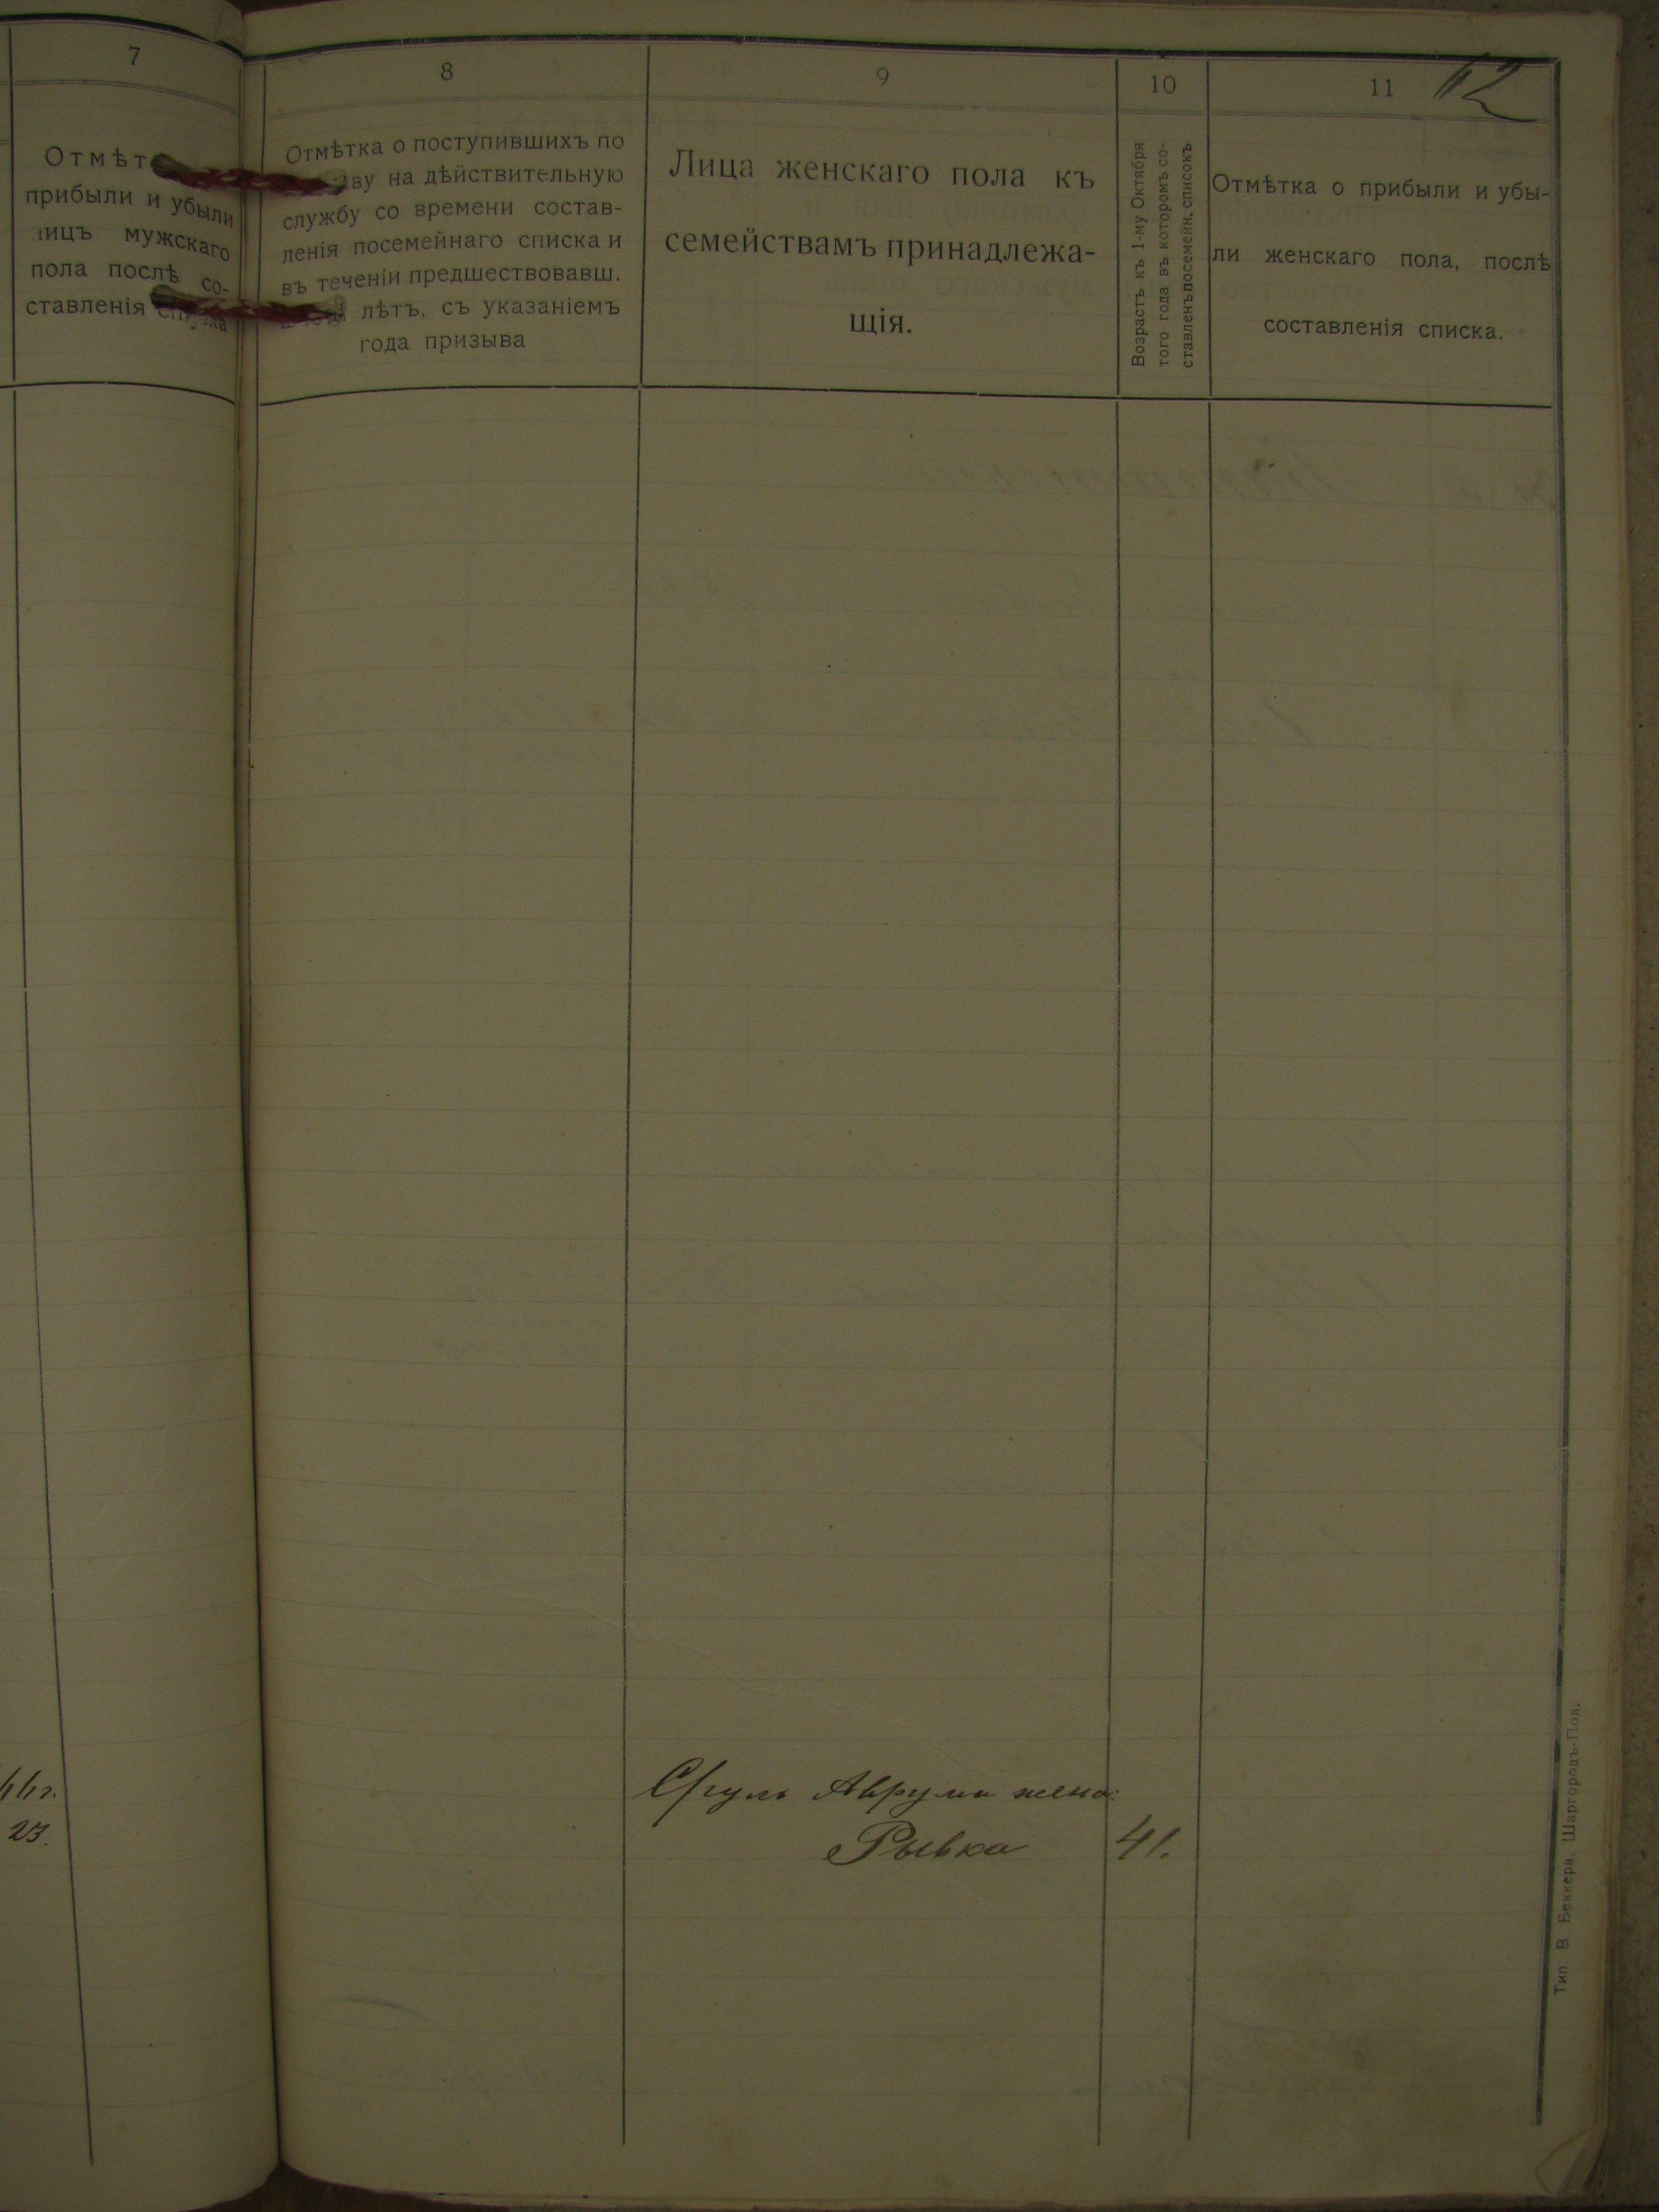 7
Отмѣт
прибыли и убыли
лицъ мужскаго
пола послѣ со-
ставленія списка
8
Отмѣтка о поступившихъ по
на дѣйствительную
службу со времени состав-
ленія посемейнаго списка и
въ теченіи предшествовавш.
лѣтъ, съ указаніемъ
года призыва
9
Лица женскаго пола къ
семействамъ принадлежа-
щія.
10
Возрастъ къ 1-му Октября
того года въ которомъ со-
ставленъ посемейн. списокъ
11
Отмѣтка о прибыли и убы-
ли женскаго пола, послѣ
составленія списка.
23.
Аврума жена:
Рывка 41.
Тип В Беккера. Шаргородъ-Под.